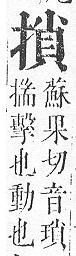 損
蘇果切音瑣
揣擊也動也